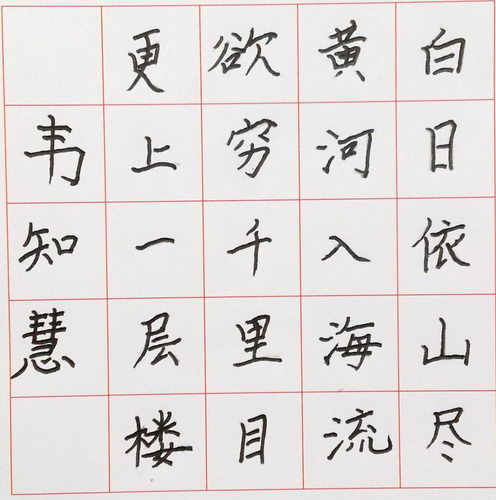 白日依山尽
黄河入海流
欲穷千里目
更上一层楼
韦知慧